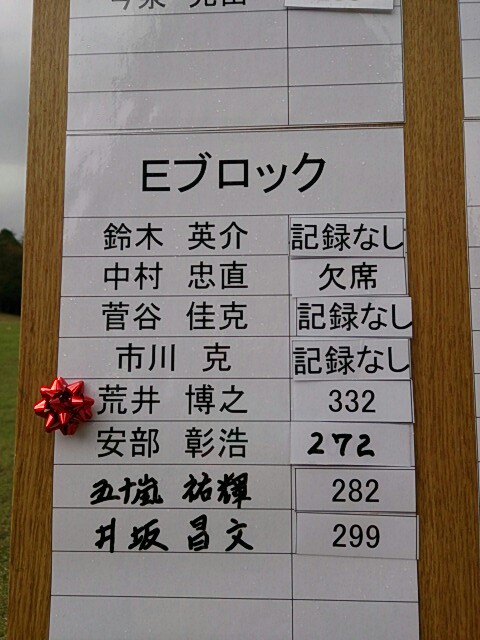 Eブロック
鈴木 英介 記録なし
中村 忠直 欠席
菅谷 佳克 記録なし
市川 克 記録なし
荒井 博之 332
安部 彰浩 272
五十嵐 祐輝 282
井坂 昌文 299